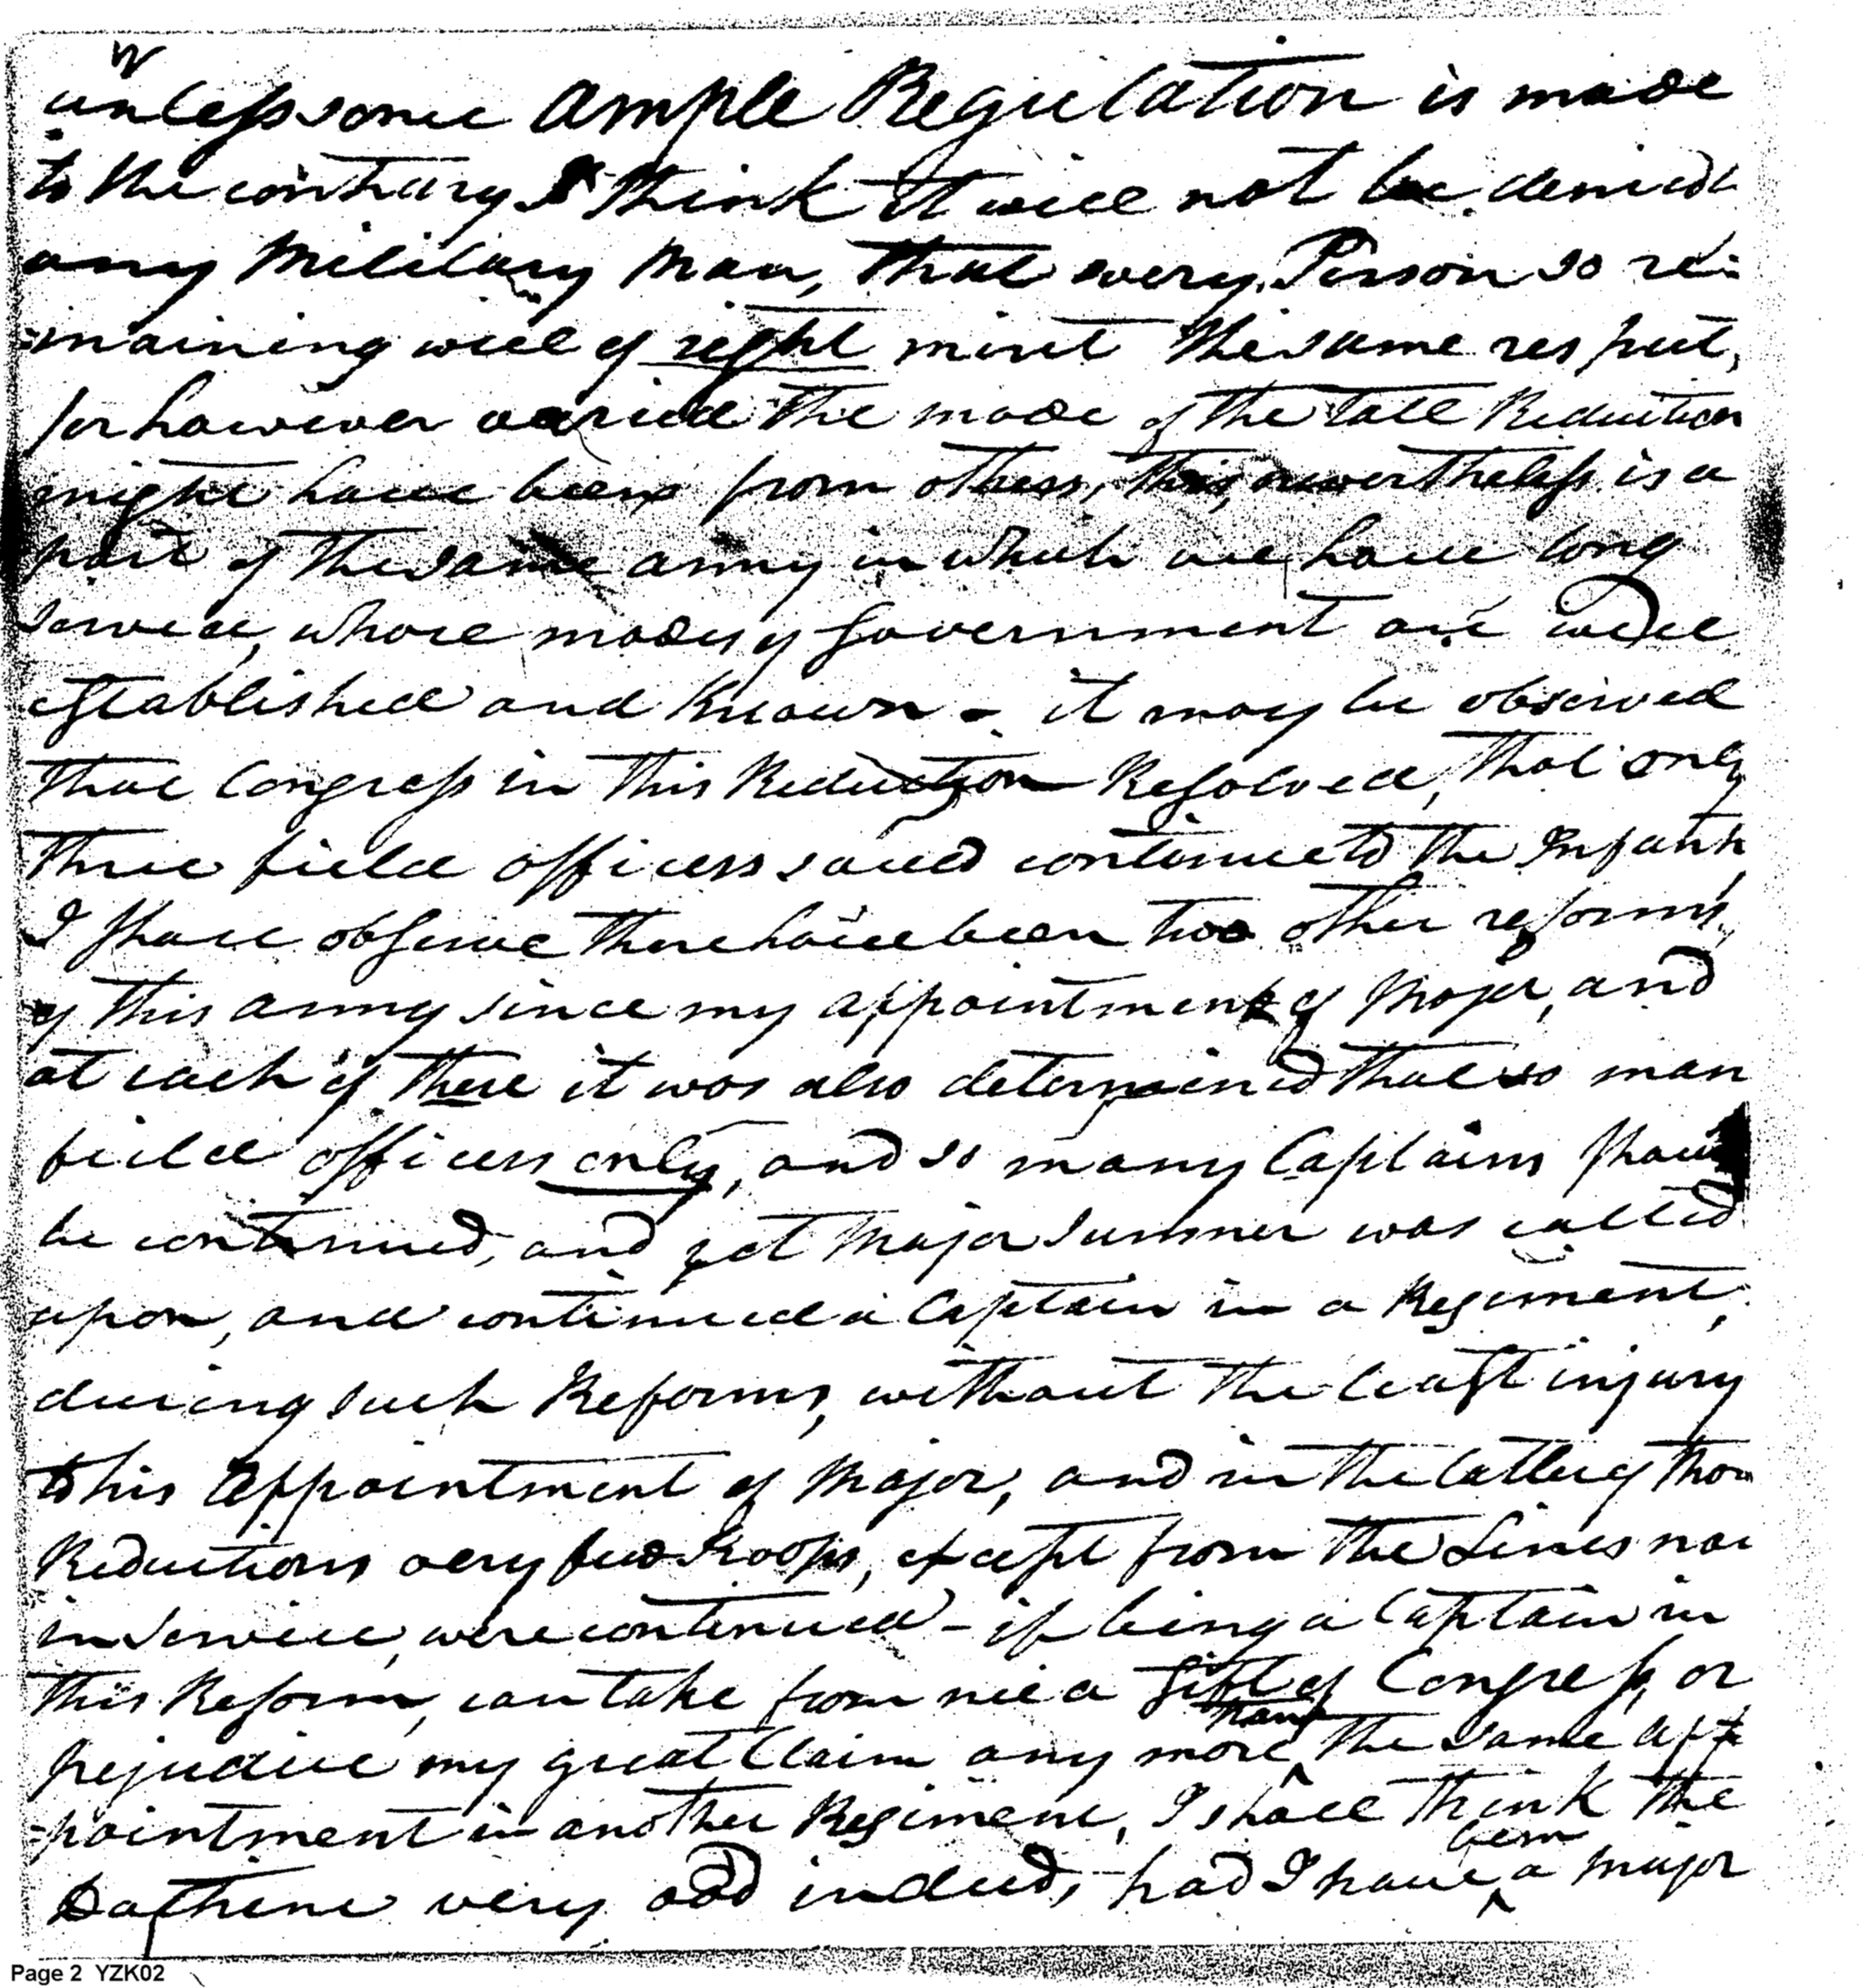 unless some ample Regulation is made
to the contrary I think it will not be denied
any Military Man, that every Person so re=
=maining will of right merit the same respect,
for however varied the mode of the late Reduction
might have been from others, this, nevertheless is a
part of the same army in which we have long
served, whose modes of Government are well
established and known - it may be observed
that Congress in this Reduction Resolved, that only
three field officers continue to the Infantr
I shall observe there have been two other reforms
of this army since my appointment of Major, and
at each of these it was also determined that so man
field officers only, and so many Captains shou
be continued, and yet Major Sumner was called
upon, and continued a Captain in a Regiment,
during such Reforms, without the least injury
to his appointment of Major, and in the latter of
Reductions very few Troops, except from the Lines
in Service, were continued - if being a Captain in
this Reform, can take from me a Gift of Congress, or
prejudice my great Claim any more than the same ap
=pointment in another Regiment, I shall think the
very odd indeed, had I have been a major
Page 2 YZK02